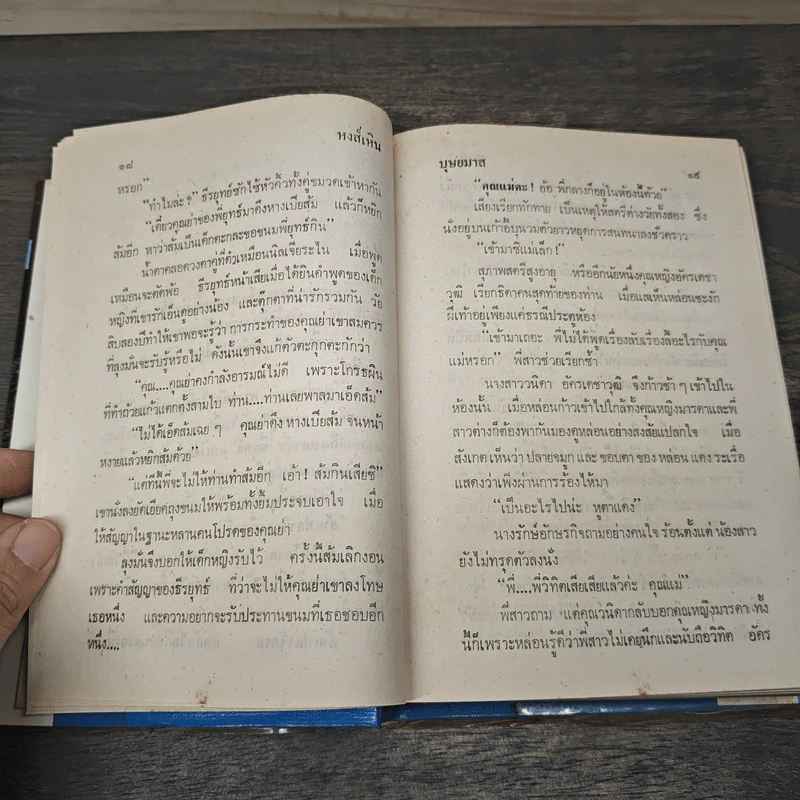 ๑๘
หงส์เหิน
หรอก"
"ทำไมล่ะ ?" ธีรยุทธ์ซักไซ้หัวคิ้วทั้งคู่ขมวดเข้าหากัน
"เดี๋ยวคุณย่าของพี่ยุทธ์มาดึงหางเปียส้ม แล้วก็หยิก
ส้มอีก หาว่าส้มเป็นเด็กตะกละขอขนมพี่ยุทธ์กิน"
น้ำตาคลอดวงตาคู่ที่ดำเหมือนนิลเจียระไน เมื่อพูด
เหมือนจะตัดพ้อ ธีรยุทธ์หน้าเสียเมื่อได้ยินคำพูดของเด็ก
หญิงที่เขารักเอ็นดูอย่างน้อง และตุ๊กตาที่น่ารักรวมกัน วัย
สิบสองปีทำให้เขาพอจะรู้ว่า การกระทำของคุณย่าเขาสมควร
ที่ลุงมั่นจะรับรู้หรือไม่ ดังนั้นเขาจึงแก้ตัวตะกุกตะกักว่า
"คุณ....คุณย่าคงกำลังอารมณ์ไม่ดี เพราะโกรธผิน
ที่ทำถ้วยแก้วแตกตั้งสามใบ ท่าน....ท่านเลยพาลมาเอ็ดส้ม"
"ไม่ได้เอ็ดส้มเฉย ๆ คุณย่าดึง หางเปียส้ม จนหน้า
หงายแล้วหยิกส้มด้วย"
"แต่ทีนี้พี่จะไม่ให้ท่านทำส้มอีก เอ้า ! ส้มกินเสียซิ"
เขานั่งลงยัดเยียดถุงขนมให้พร้อมทั้งยิ้มประจบเอาใจ เมื่อ
ให้สัญญาในฐานะหลานคนโปรดของคุณย่า
ลุงมั่นจึงบอกให้เด็กหญิงรับไว้ ครั้งนี้ส้มเลิกงอน
เพราะคำสัญญาของธีรยุทธ์ ที่ว่าจะไม่ให้คุณย่าเขาลงโทษ
เธอหนึ่ง และความอยากจะรับประทานขนมที่เธอชอบอีก
หนึ่ง....
บุษยมาส
๑๙
"คุณแม่คะ ! อ้อ พี่กลางก็อยู่ในห้องนี้ด้วย"
เสียงเรียกทักทาย เป็นเหตุให้สตรีต่างวัยทั้งสอง ซึ่ง
นั่งอยู่บนเก้าอี้บุนวมตัวยาวหยุดการสนทนาลงชั่วคราว
"เข้ามาซิแม่เล็ก !"
สุภาพสตรีสูงอายุ หรืออีกนัยหนึ่งคุณหญิงอัครเดชา
วุฒิ เรียกธิดาคนสุดท้ายของท่าน เมื่อแลเห็นหล่อนชะงัก
ฝีเท้าอยู่เพียงแค่ธรณีประตูห้อง
"เข้ามาเถอะ พี่ไม่ได้พูดเรื่องลับเรื่องลี้อะไรกับคุณ
แม่หรอก" พี่สาวช่วยเรียกซ้ำ
นางสาววนิดา อัครเดชาวุฒิ จึงก้าวช้า ๆ เข้าไปใน
ห้องนั้น เมื่อหล่อนก้าวเข้าไปใกล้ทั้งคุณหญิงมารดาและพี่
สาวต่างก็ต้องพากันมองดูหล่อนอย่างสงสัยแปลกใจ เมื่อ
สังเกตเห็นว่า ปลายจมูก และ ขอบตา ของ หล่อน แดง ระเรื่อ
แสดงว่าเพิ่งผ่านการร้องไห้มา
"เป็นอะไรไปน่ะ หูตาแดง"
นางรักษ์อักษรกิจถามอย่างคนใจ ร้อนตั้งแต่ น้องสาว
ยังไม่ทรุดตัวลงนั่ง
"พี่....พี่วิทิตเสียเสียแล้วค่ะ คุณแม่"
พี่สาวถาม แต่คุณวนิดากลับบอกคุณหญิงมารดา ทั้ง
นี้ก็เพราะหล่อนรู้ดีว่าพี่สาวไม่เคยนึกและนับถือวิทิต อัคร